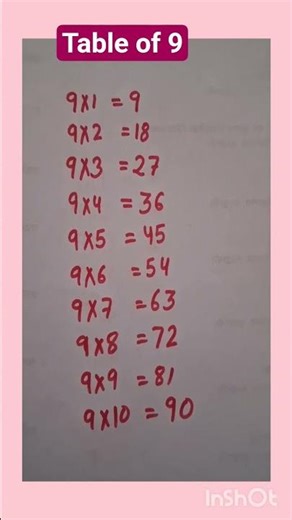 Table of 9
9x1 = 9
9x2 = 18
9x3 = 27
9x4 = 36
9x5 = 45
9x6 = 54
9x7 = 63
9x8 = 72
9x9 = 81
9x10 = 90
InShOt